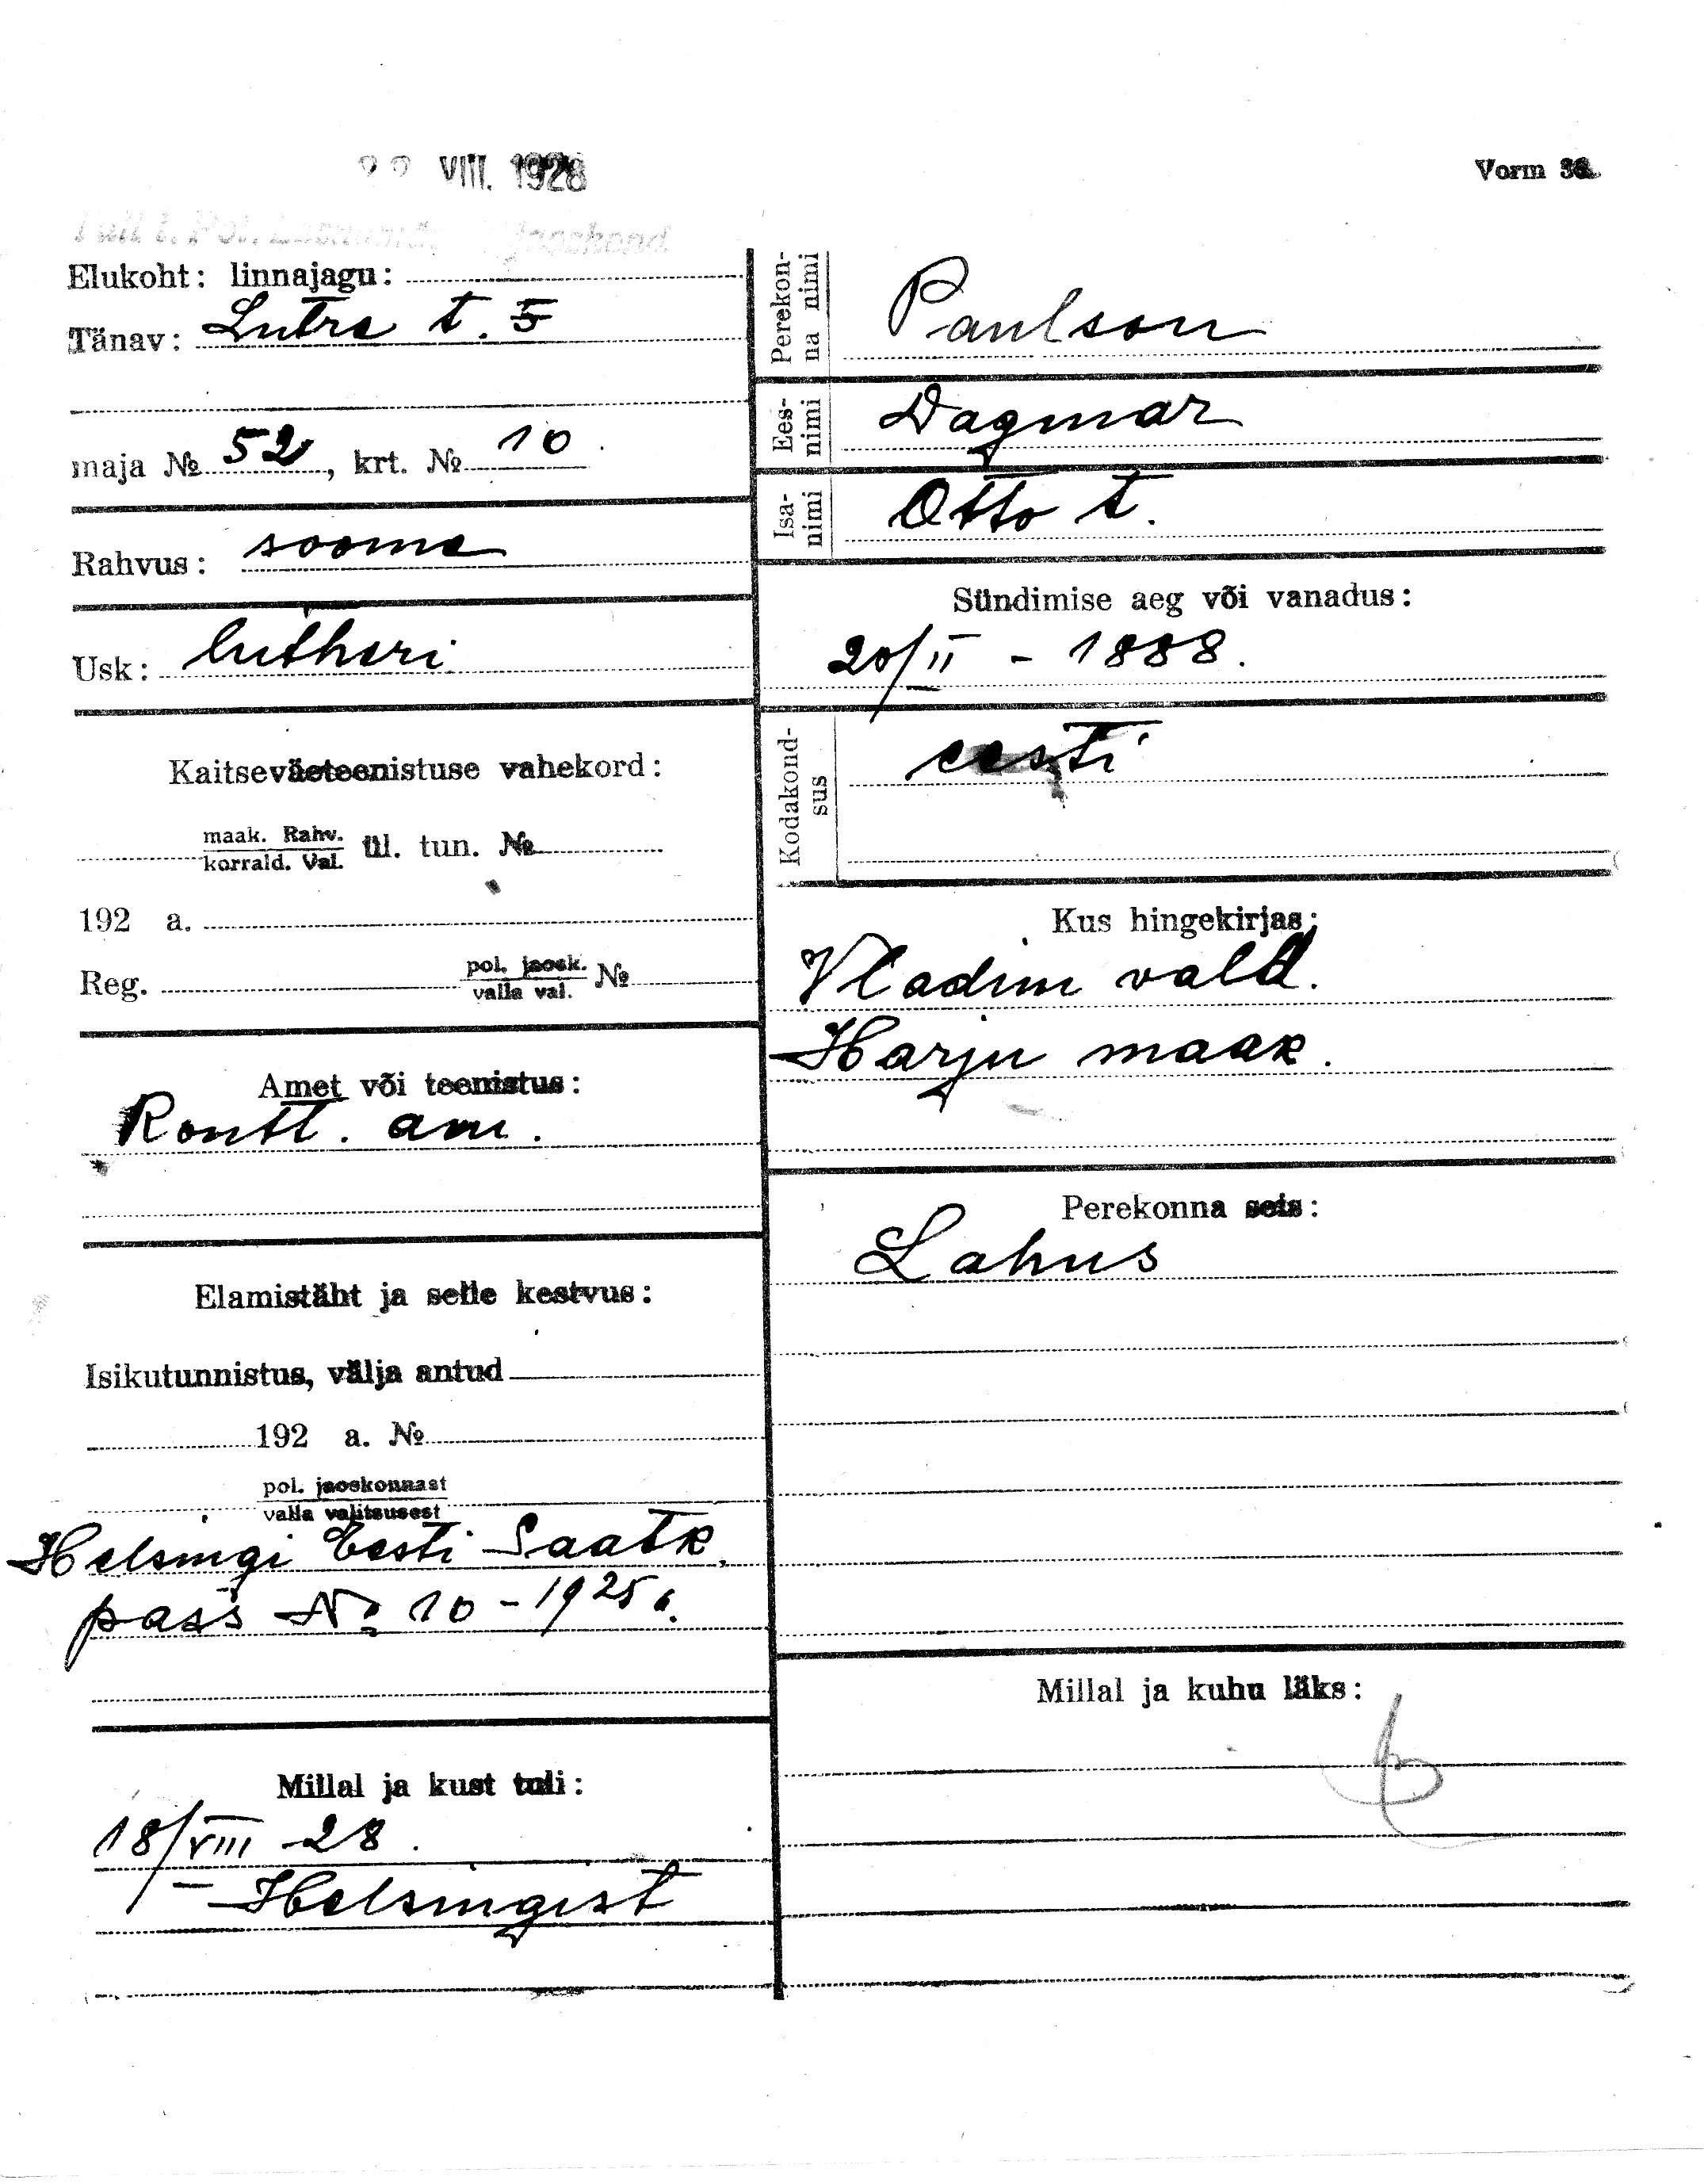 VIII. 1928
Vorm 36.
jaoskond.
Elukoht: linnajagu:
Tänav: Lutre t. 5
maja № 52, krt. № 10.
Rahvus: soome
Usk: lutheri
Kaitseväeteenistuse vahekord:
maak. Rahv.
korrald. Val. ül. tun. №
192 a.
Reg. pol. jaosk. №
valla val.
Amet või teenistus:
Kontt. am.
Elamistäht ja selle kestvus:
Isikutunnistus, välja antud
192 a. №
pol. jaoskonnast
valla valitsusest
Helsingi Eesti Saatk.
pass № 10 - 1925 a.
Millal ja kust tuli:
18/VIII -28.
Helsingist
Perekonna nimi
Paulson
Eesnimi
Dagmar
Isanimi
Otto t.
Sündimise aeg või vanadus:
20/II - 1888.
Kodakondsus
eesti
Kus hingekirjas:
Vladim vald.
Harju maak.
Perekonna seis:
Lahus
Millal ja kuhu läks: